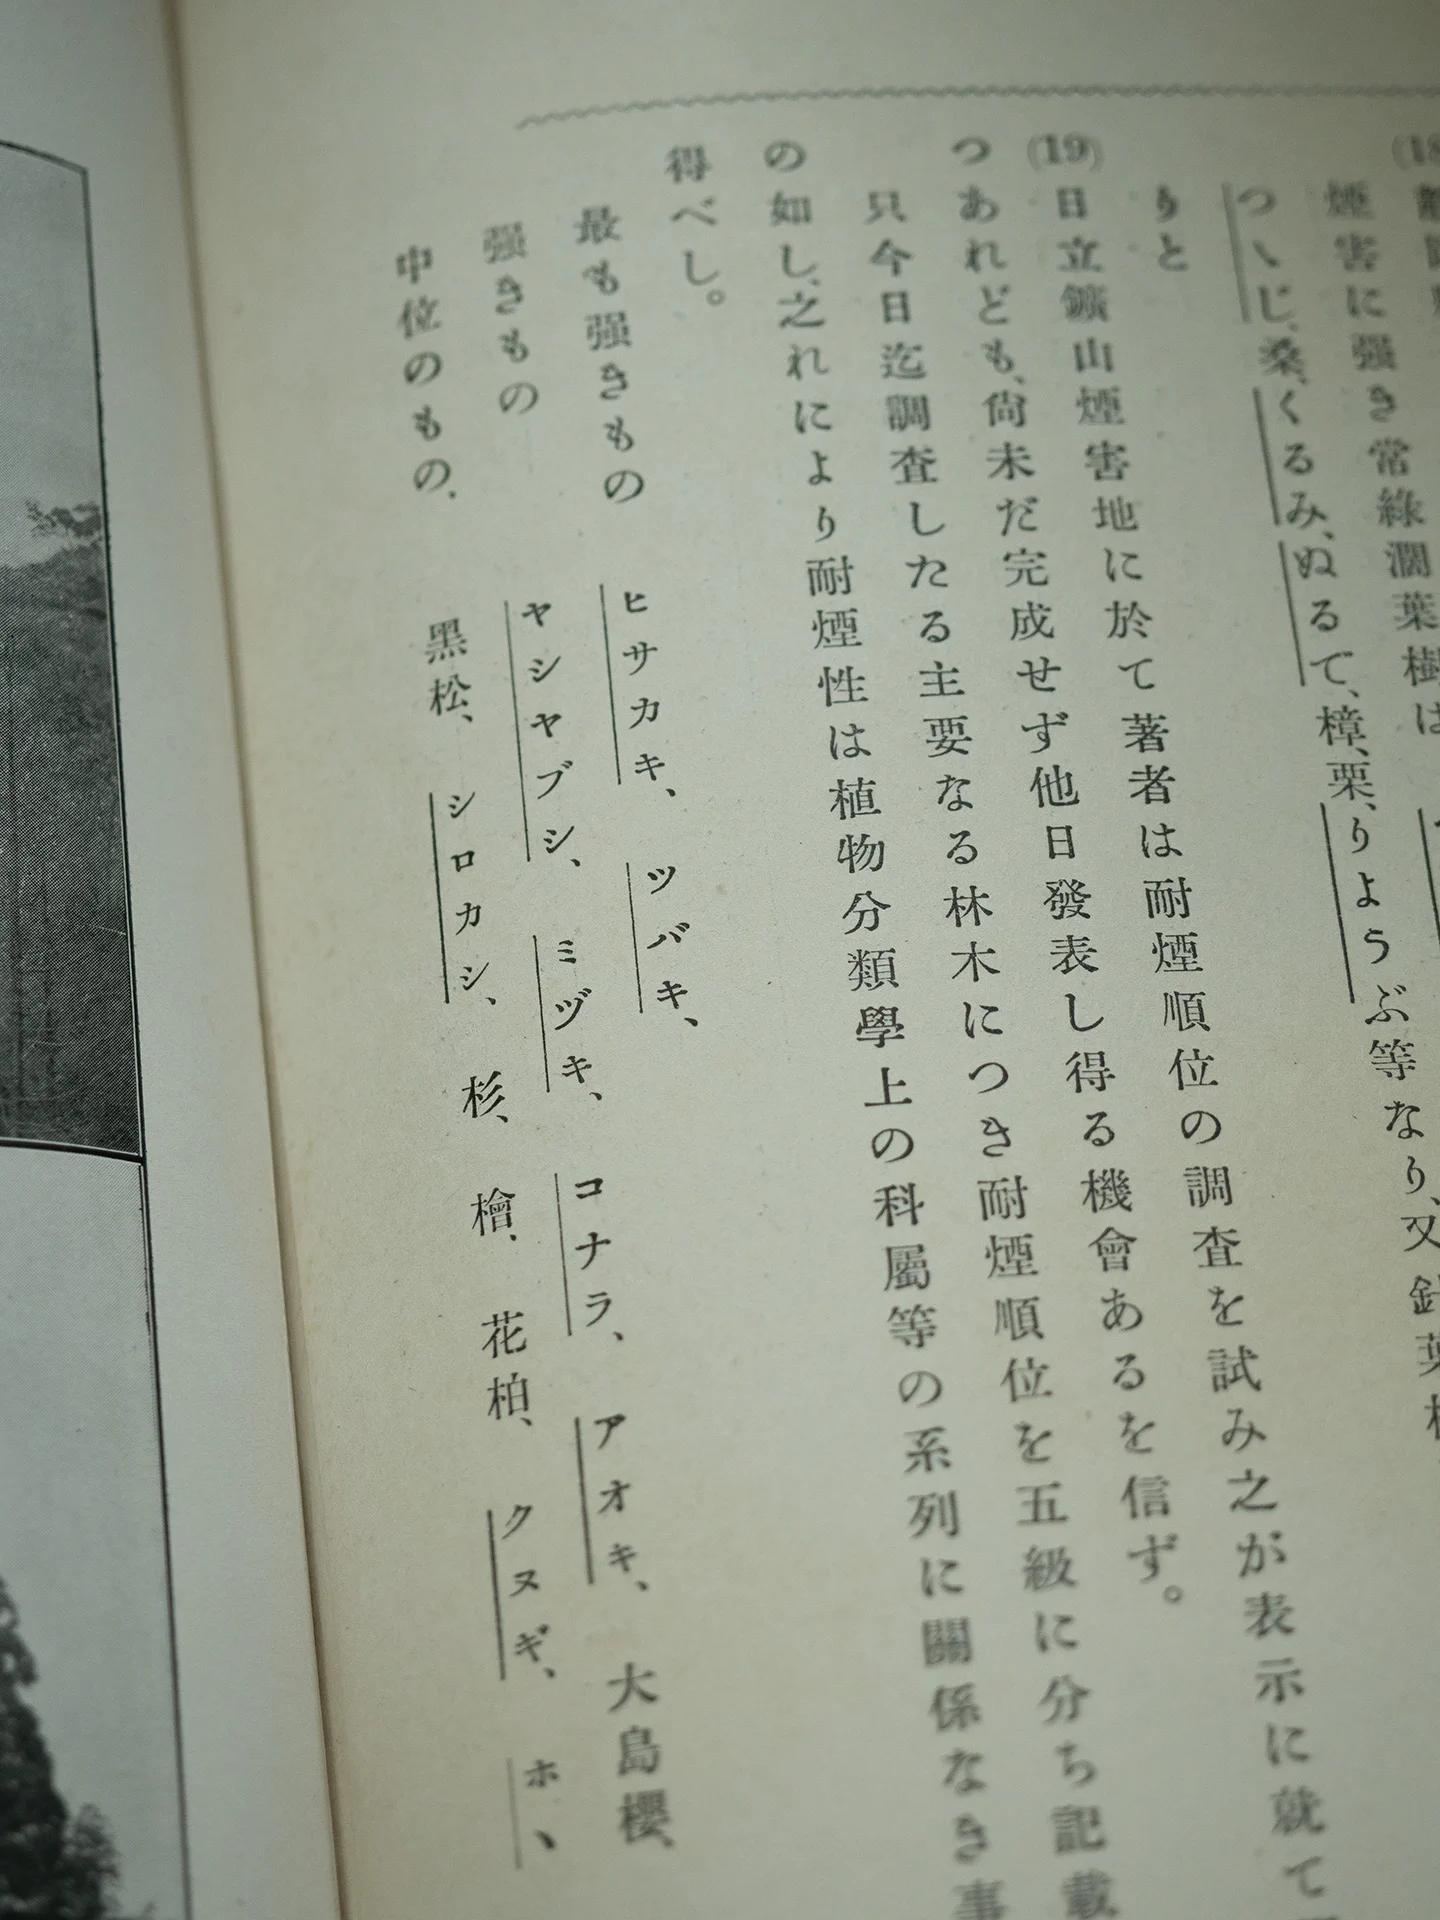 煙害に强き常綠濶葉樹は
つゝじ、桑、くるみ、ぬるで、樟、栗、りようぶ等なり、又針葉
りと
(19) 日立鑛山煙害地に於て著者は耐煙順位の調査を試み之が表示に就て
つあれども、尙未だ完成せず他日發表し得る機會あるを信ず。
只今日迄調査したる主要なる林木につき耐煙順位を五級に分ち記載
の如し、之れにより耐煙性は植物分類學上の科屬等の系列に關係なき事
得べし。
最も强きもの ヒサカキ、ツバキ、
强きもの ヤシヤブシ、ミヅキ、コナラ、アオキ、大島櫻、
中位のもの、 黑松、シロカシ、杉、檜、花柏、クヌギ、ホヽ